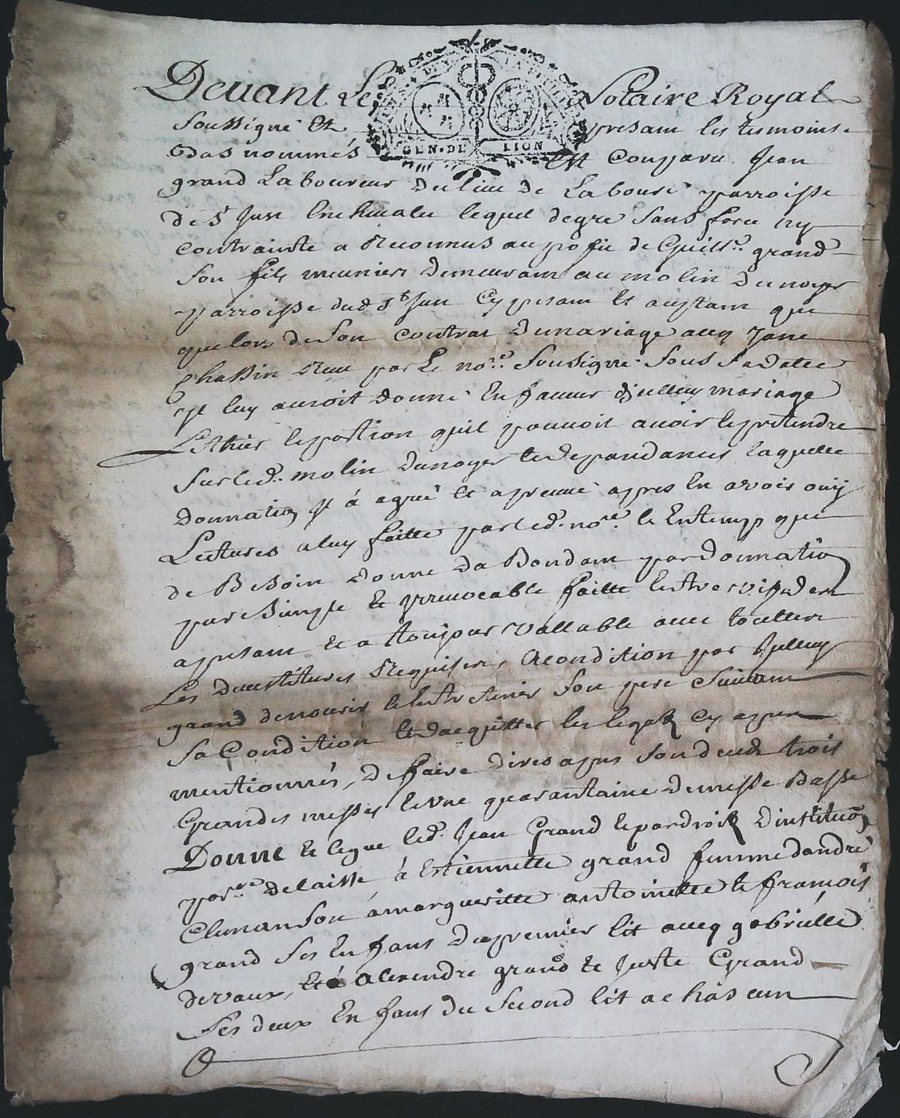 Devant Le Notaire Royal
Soussigné Et presam les tesmoins
Bas nommés Est Comparu Jean
GEN · DE LION
grand Laboureur Du lieu de Laboure parroisse
de St Just lequel degre Sans force ny
contrainte a Reconnus au de Guill.e grand
Son fils meunier demeuram au molin Du noyer
parroisse dud St Just Cy presam Et que
que lors de Son Contrat Dumariage avec Jane
Chassin Receu par Le no.re Soussigné Sous Sa datte
Jl luy auroit donné En faveur Dicelluy mariage
le portion quil pouvoit avoir le pretendre
Sur led. molin Dunoyer les dependances laquelle
Donnation Jl à agréé Et apreuvé apres En avoir ouy
Lectures a luy faitte par led. no.re Et Entemp que
de Besoin Donne Da Bondam par Donnation
pur Simple Et yrrevocable faitte Entre vif
apresam Et a toujour vallable avec touttes
Les Requises, Acondition par Jcelluy
grand denourir Son pere Suivam
Sa Condition Et dacquitter les legat Cy apres
mentionnés, De faire dires apres Son deceds trois
Grandes messes Et une quarantaine Demesse Basse
Donne Et legue led. Jean Grand Et par droit Dinstitution
delaissé à Estiennette grand femme dandré
Clunanson à margueritte antoinette Et francois
grand Ses Enfans Du premier Lit avec gabrielle
devaux, Et à Alexendre grand Et Juste Grand
Ses deux Enfans du Second Lit a chascun